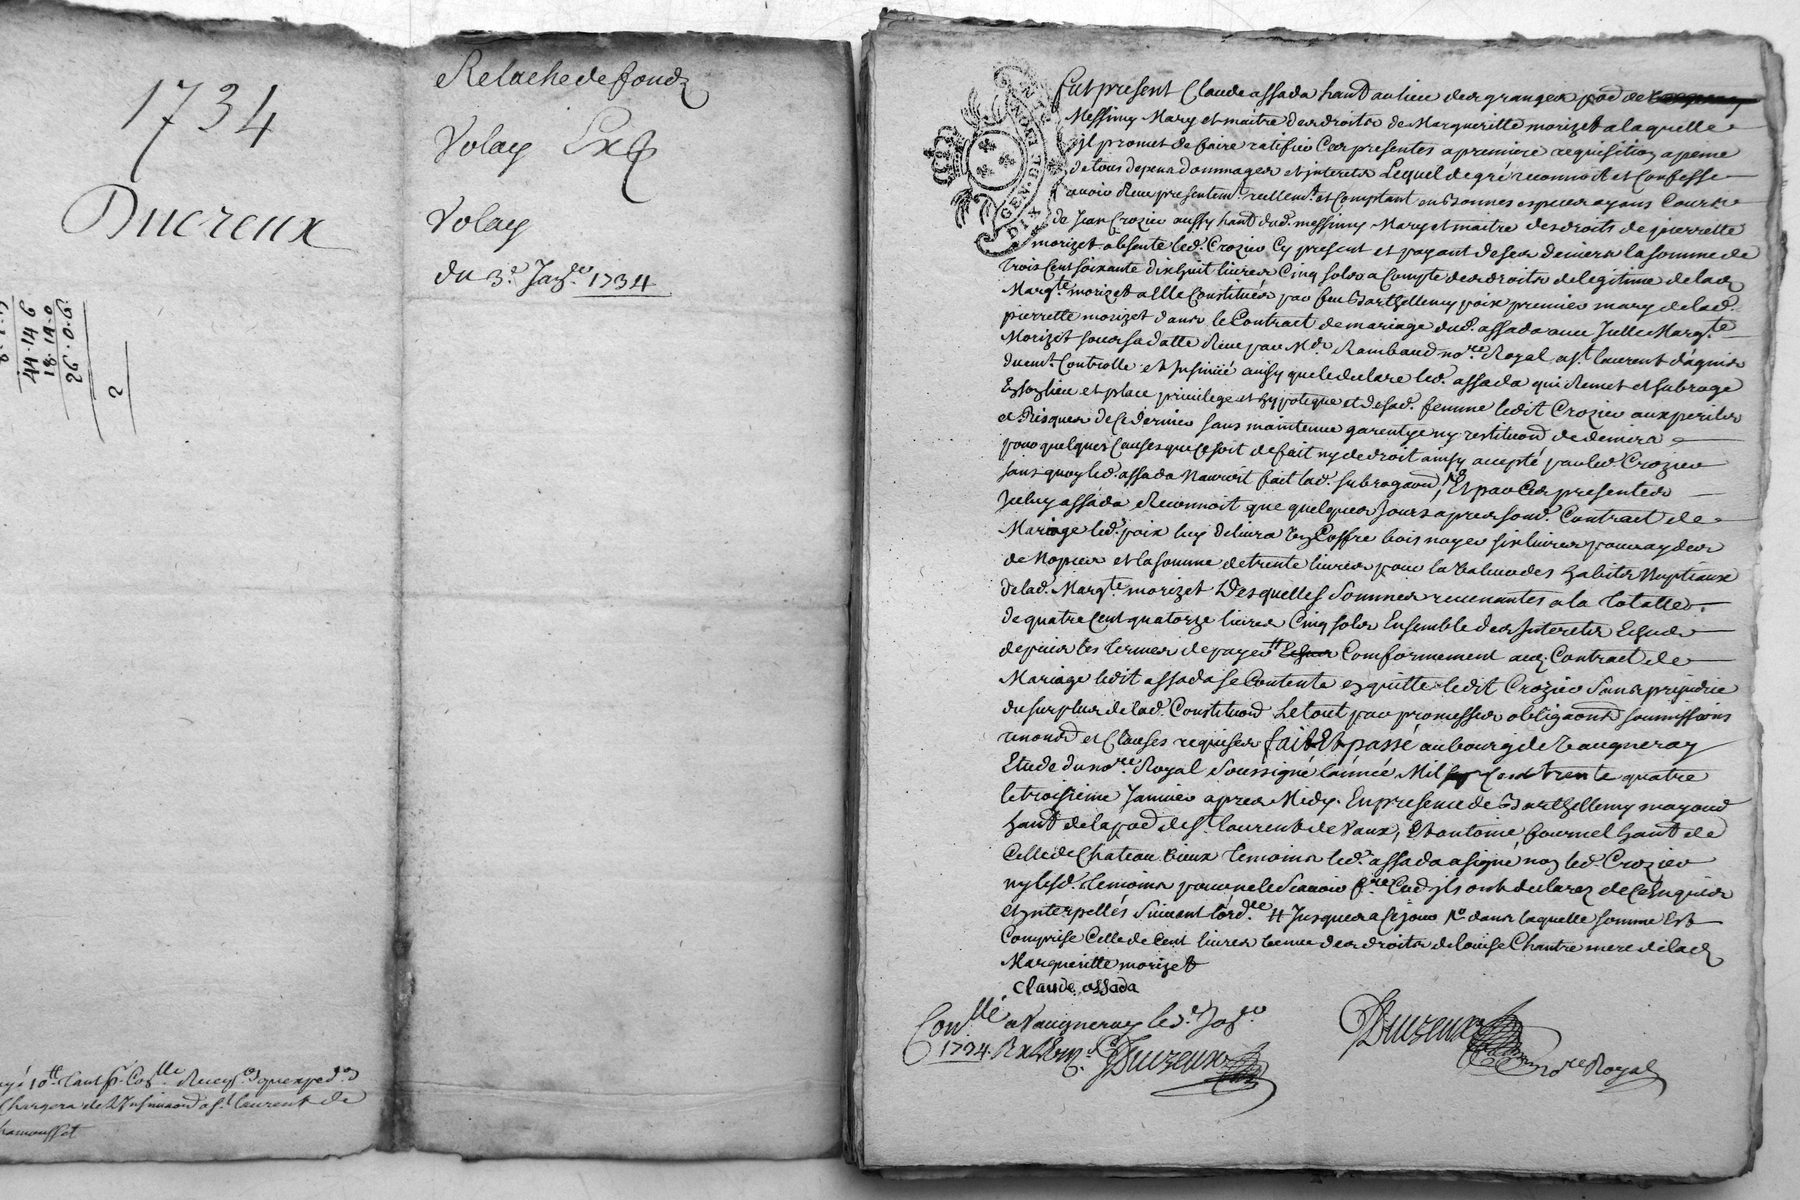 1734
Ducreux
44·14·6
18·14·0
26·0·6
2
Relache de fond
Volay Exp
Volay
du 3e Janer 1734
Chargera de l'Insinuaon a st laurent de
chamousset
GEN. DE
Fut present Claude assada hant au lieu des granges pod de
Messimy Mary et maitre des droits de Margueritte morizet a laquelle
jl promet de faire ratifier Ces presentes a premiere requisition a peine
de tous depens dommages et interets Lequel de gré reconnoit et Confesse
avoir Receu presentemt reellemt et Comptant en Bonnes especes ayans Cours
de Jean Crozier aussy hant dud. messimy Mary et maitre des droits de pierrette
morizet absente led. Crozier Cy present et payant de ses deniers la somme de
trois Cent soixante dix huit livres Cinq sols a Compte des droits de legitime de lad
Margte morizet a Elle Constitués par feu Barthellemy poix premier mary de lad.
pierrette morizet dans le Contract de mariage dud. assada avec Jcelle Margte
Morizet sous sa datte Receu par Me. Rambaud nore Royal a st laurent d'agnis
duemt Controllé et Insinüé ainsy que le declare led. assada qui Remet et subroge
En son lieu et place privilege et hypoteque et de sad. femme ledit Crozier aux perils
et Risques de Ce dernier sans maintenue garentye ny restituon de deniers
pour quelques Causes que Ce soit de fait ny de droit ainsy accepté par led Crozier
sans quoy led. assada N'auroit fait lad. subrogaon, Et par Ces presentes
Jceluy assada Reconnoit que quelques Jours apres sond. Contract de
Mariage led. poix luy delivra Un Coffre bois noyer six livres pour ayder
de Nopces et la somme de trente livres pour la Valeur des habits Nuptiaux
de lad. Margte morizet Desquelles sommes revenantes a la totalle
de quatre Cent quatorze livres Cinq sols Ensemble des Interets Echus
depuis les termes de payer Conformement aud Contract de
Mariage ledit assada se Contente en quitte ledit Crozier sans prejudice
du surplus de lad. Constituon Le tout par promesses obligaons soumissions
renonons et Clauses requises fait Et passé au bourg de Vaugneray
Etude du nore Royal soussigné l'année Mil sept Cent trente quatre
le troisieme Janvier apres Midy. En presence de Barthellemy mayoud
hant de la pod de st laurent de Vaux, Et antoine fournel hant de
Celle de Chateau Vieux temoins led. assada a signé non led. Crozier
ny lesd. temoins pour ne le scavoir fre Como jls ont declarez de Ce Enquis
et Interpellés suivant l'ordee # Jusques a Ce jour Ro dans laquelle somme Est
Comprise Celle de Cent livres Venue des droits de louise Chantre mere de lad
Margueritte morizet
claude assada
Conllé a Vaugneray le 3e Janer
1734. Ducreux
Ducreux
nore Royal